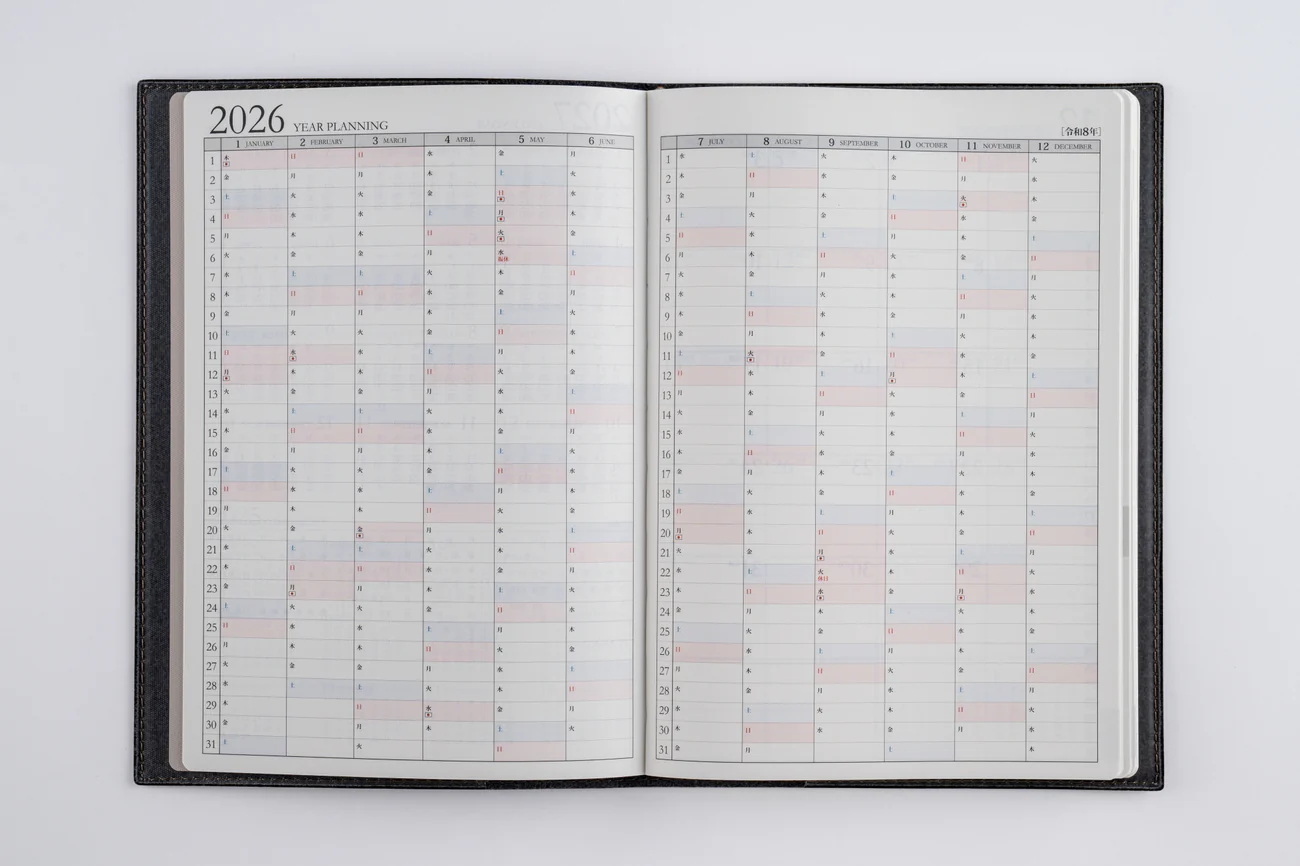 2026 YEAR PLANNING
1 JANUARY 2 FEBRUARY 3 MARCH 4 APRIL 5 MAY 6 JUNE
1 木 日 日 水 金 月
2 金 月 月 木 土 火
3 土 火 火 金 日 水
4 日 水 水 土 月 木
5 月 木 木 日 火 金
6 火 金 金 月 水 振休 土
7 水 土 土 火 木 日
8 木 日 日 水 金 月
9 金 月 月 木 土 火
10 土 火 火 金 日 水
11 日 水 水 土 月 木
12 月 木 木 日 火 金
13 火 金 金 月 水 土
14 水 土 土 火 木 日
15 木 日 日 水 金 月
16 金 月 月 木 土 火
17 土 火 火 金 日 水
18 日 水 水 土 月 木
19 月 木 木 日 火 金
20 火 金 金 月 水 土
21 水 土 土 火 木 日
22 木 日 日 水 金 月
23 金 月 月 木 土 火
24 土 火 火 金 日 水
25 日 水 水 土 月 木
26 月 木 木 日 火 金
27 火 金 金 月 水 土
28 水 土 土 火 木 日
29 木 日 水 金 月
30 金 月 木 土 火
31 土 火 日
[令和8年]
7 JULY 8 AUGUST 9 SEPTEMBER 10 OCTOBER 11 NOVEMBER 12 DECEMBER
1 水 土 火 木 日 火
2 木 日 水 金 月 水
3 金 月 木 土 火 木
4 土 火 金 日 水 金
5 日 水 土 月 木 土
6 月 木 日 火 金 日
7 火 金 月 水 土 月
8 水 土 火 木 日 火
9 木 日 水 金 月 水
10 金 月 木 土 火 木
11 土 火 金 日 水 金
12 日 水 土 月 木 土
13 月 木 日 火 金 日
14 火 金 月 水 土 月
15 水 土 火 木 日 火
16 木 日 水 金 月 水
17 金 月 木 土 火 木
18 土 火 金 日 水 金
19 日 水 土 月 木 土
20 月 木 日 火 金 日
21 火 金 月 水 土 月
22 水 土 火 休日 木 日 火
23 木 日 水 金 月 水
24 金 月 木 土 火 木
25 土 火 金 日 水 金
26 日 水 土 月 木 土
27 月 木 日 火 金 日
28 火 金 月 水 土 月
29 水 土 火 木 日 火
30 木 日 水 金 月 水
31 金 月 土 木